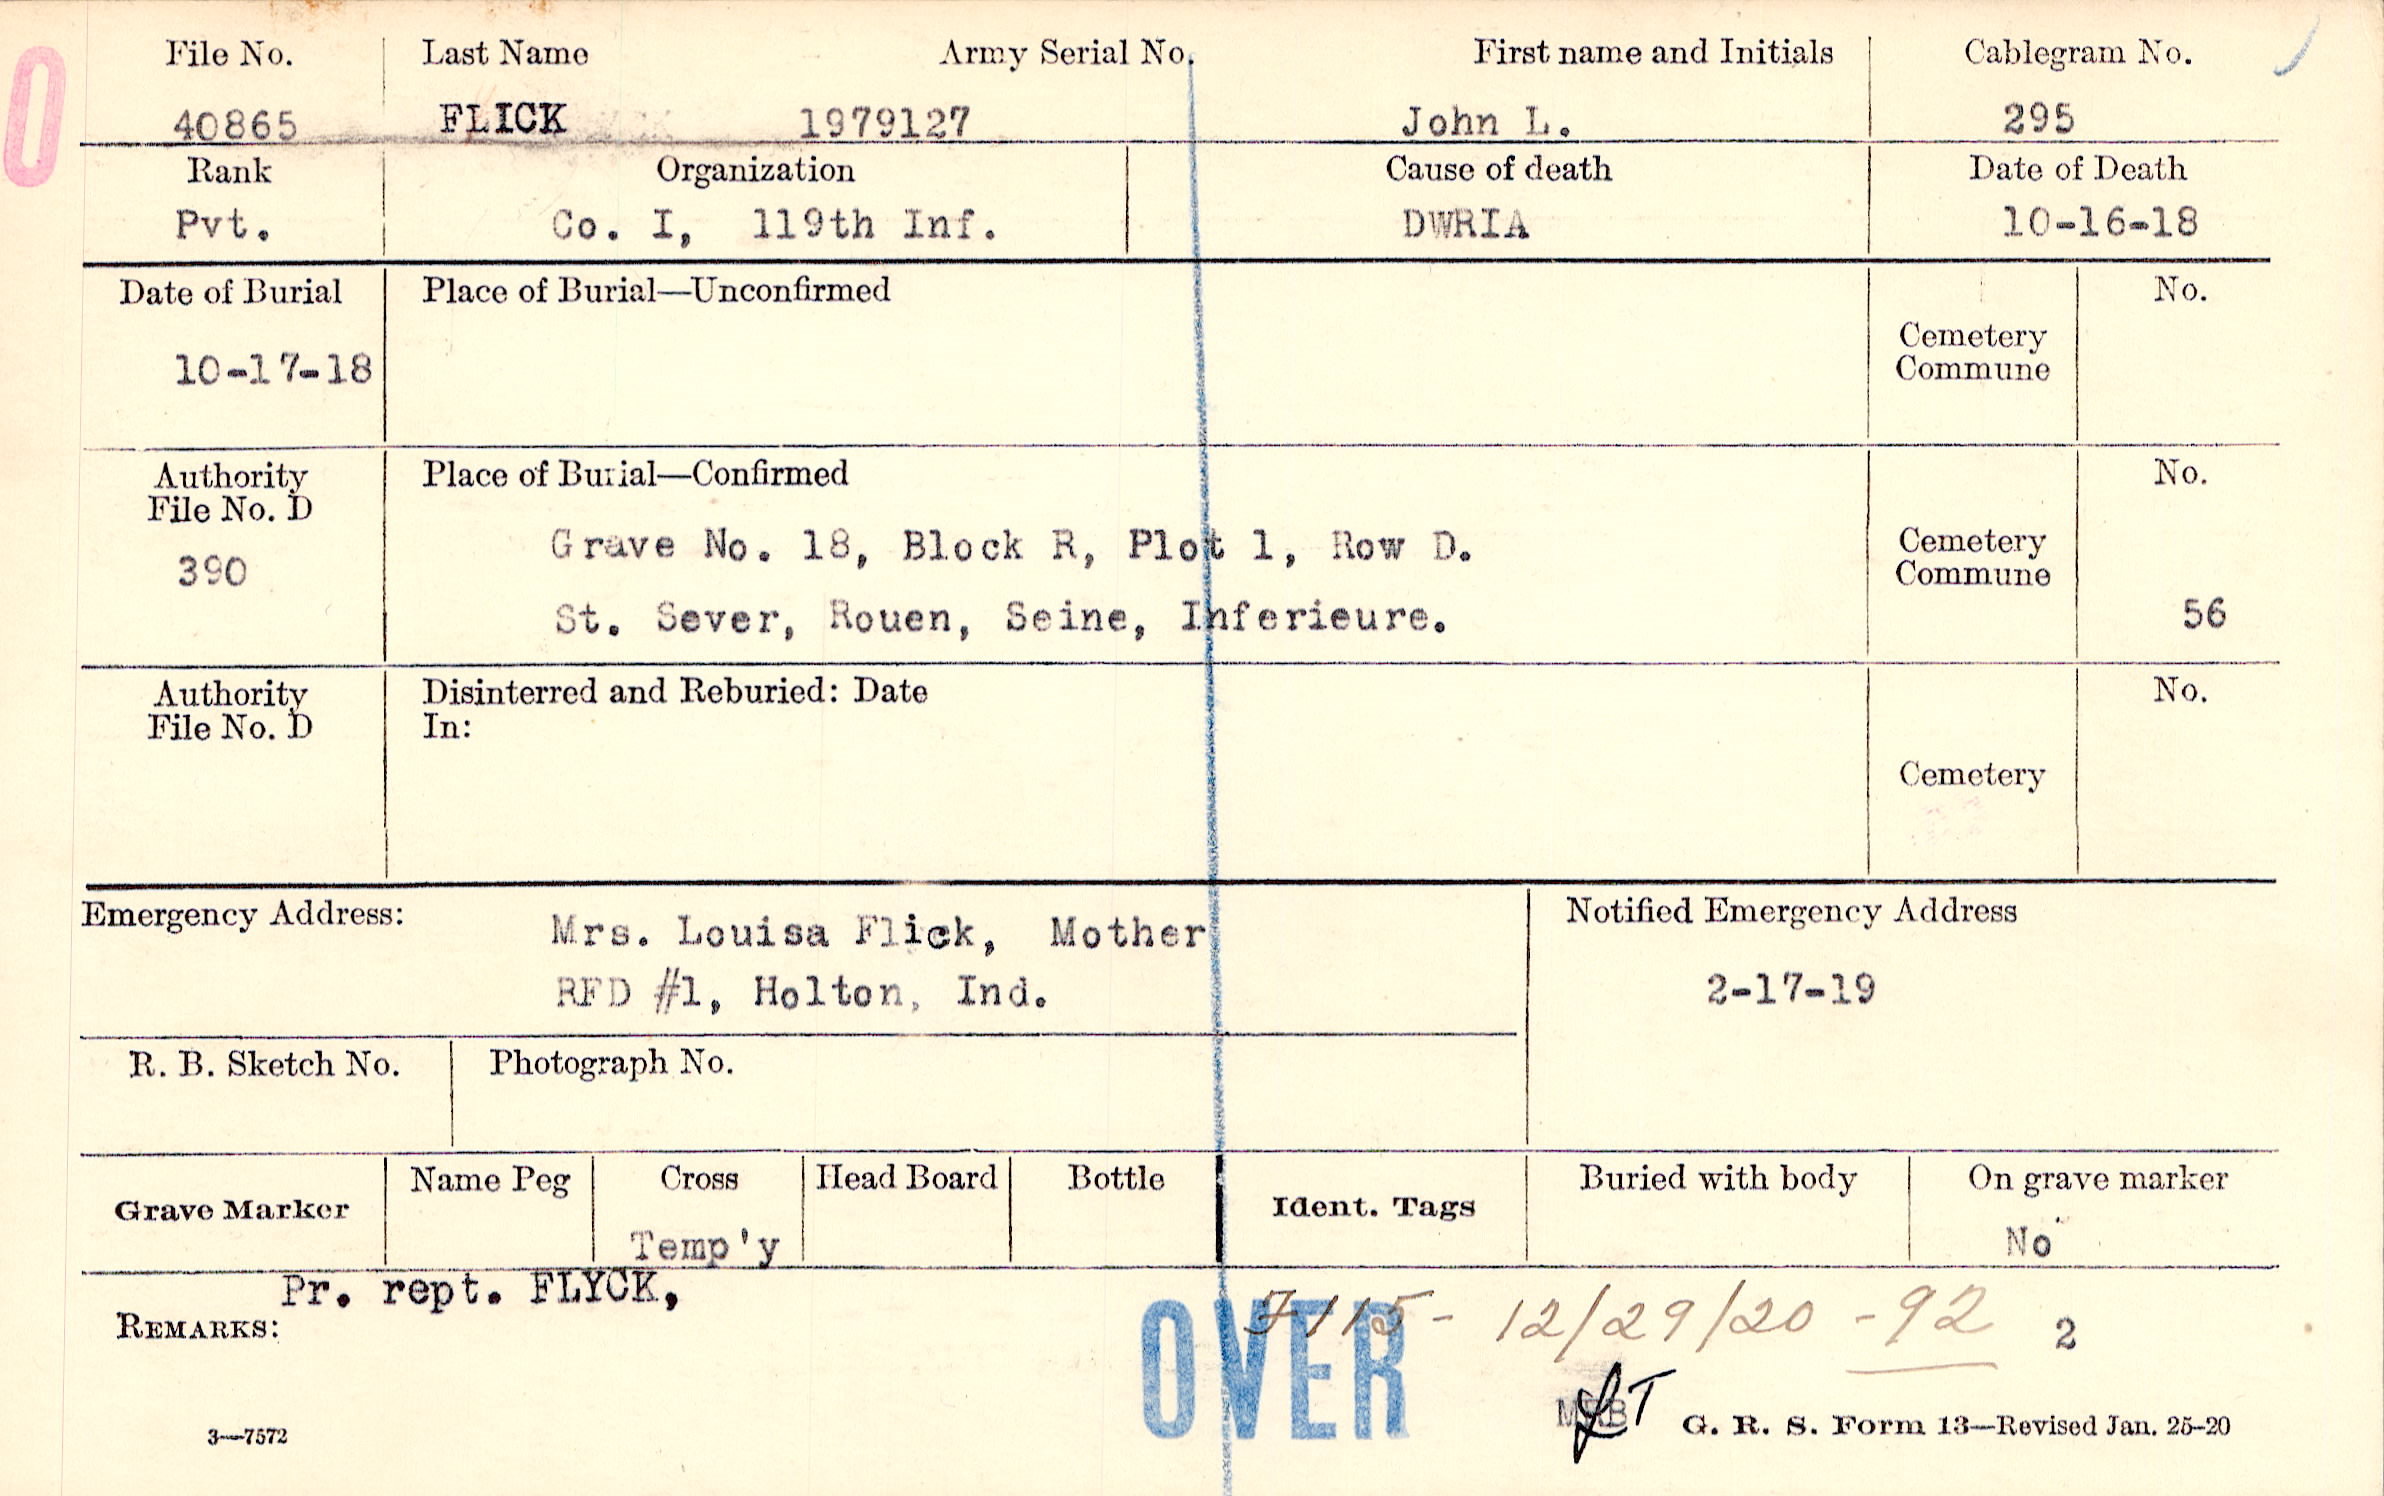 File No. Last Name Army Serial No. First name and Initials Cablegram No.
40865 FLICK 1979127 John L. 295
Rank Organization Cause of death Date of Death
Pvt. Co. I, 119th Inf. DWRIA 10-16-18
Date of Burial Place of Burial—Unconfirmed No.
Cemetery
Commune
10-17-18
Authority Place of Burial—Confirmed No.
File No. D
390 Grave No. 18, Block R, Plot 1, Row D. Cemetery
Commune
St. Sever, Rouen, Seine, Inferieure. 56
Authority Disinterred and Reburied: Date No.
File No. D In:
Cemetery
Emergency Address: Mrs. Louisa Flick, Mother Notified Emergency Address
RFD #1, Holton, Ind. 2-17-19
R. B. Sketch No. Photograph No.
Grave Marker Name Peg Cross Head Board Bottle Ident. Tags Buried with body On grave marker
Temp'y No
Pr. rept. FLYCK,
REMARKS: OVER 7115- 12/29/20 -92 2
LT
3—7572 G. R. S. Form 13—Revised Jan. 25-20